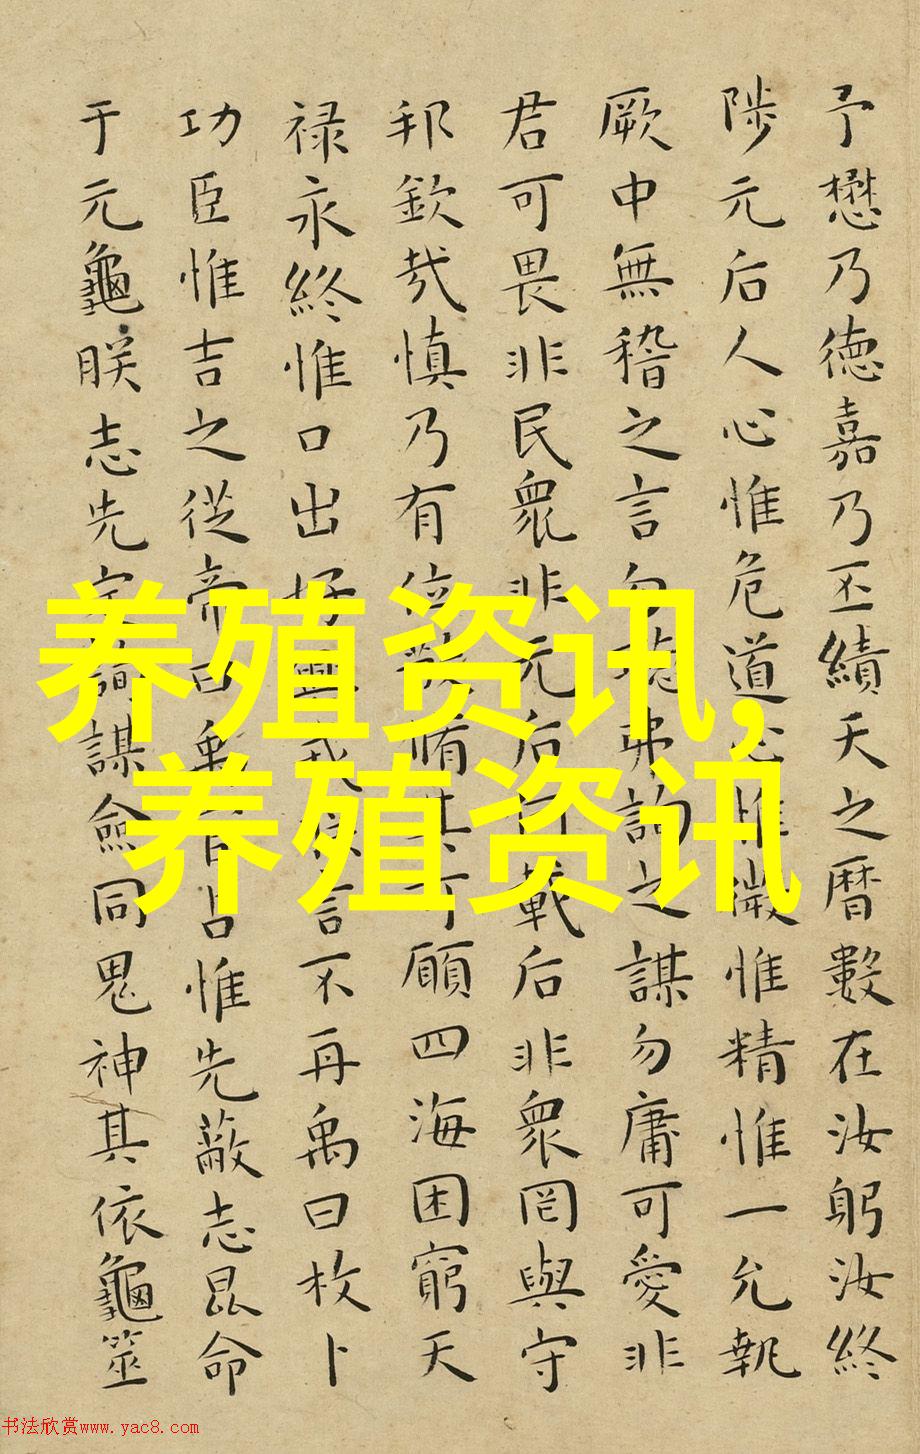 予懋乃德嘉乃丕績天之曆數在汝躬汝終
陟元后人心惟危道心惟微惟精惟一允執
厥中無稽之言勿聽弗詢之謀勿庸可愛非
君可畏非民衆非元后何戴后非衆罔與守
邦欽哉慎乃有位敬脩其可願四海困窮天
禄永終惟口出好興戎朕言不再禹曰枚卜
功臣惟吉之從帝曰禹官占惟先蔽志昆命
于元龜朕志先定詢謀僉同鬼神其依龜筮
养殖资讯,
养殖资讯
书法欣赏www.yac8.com